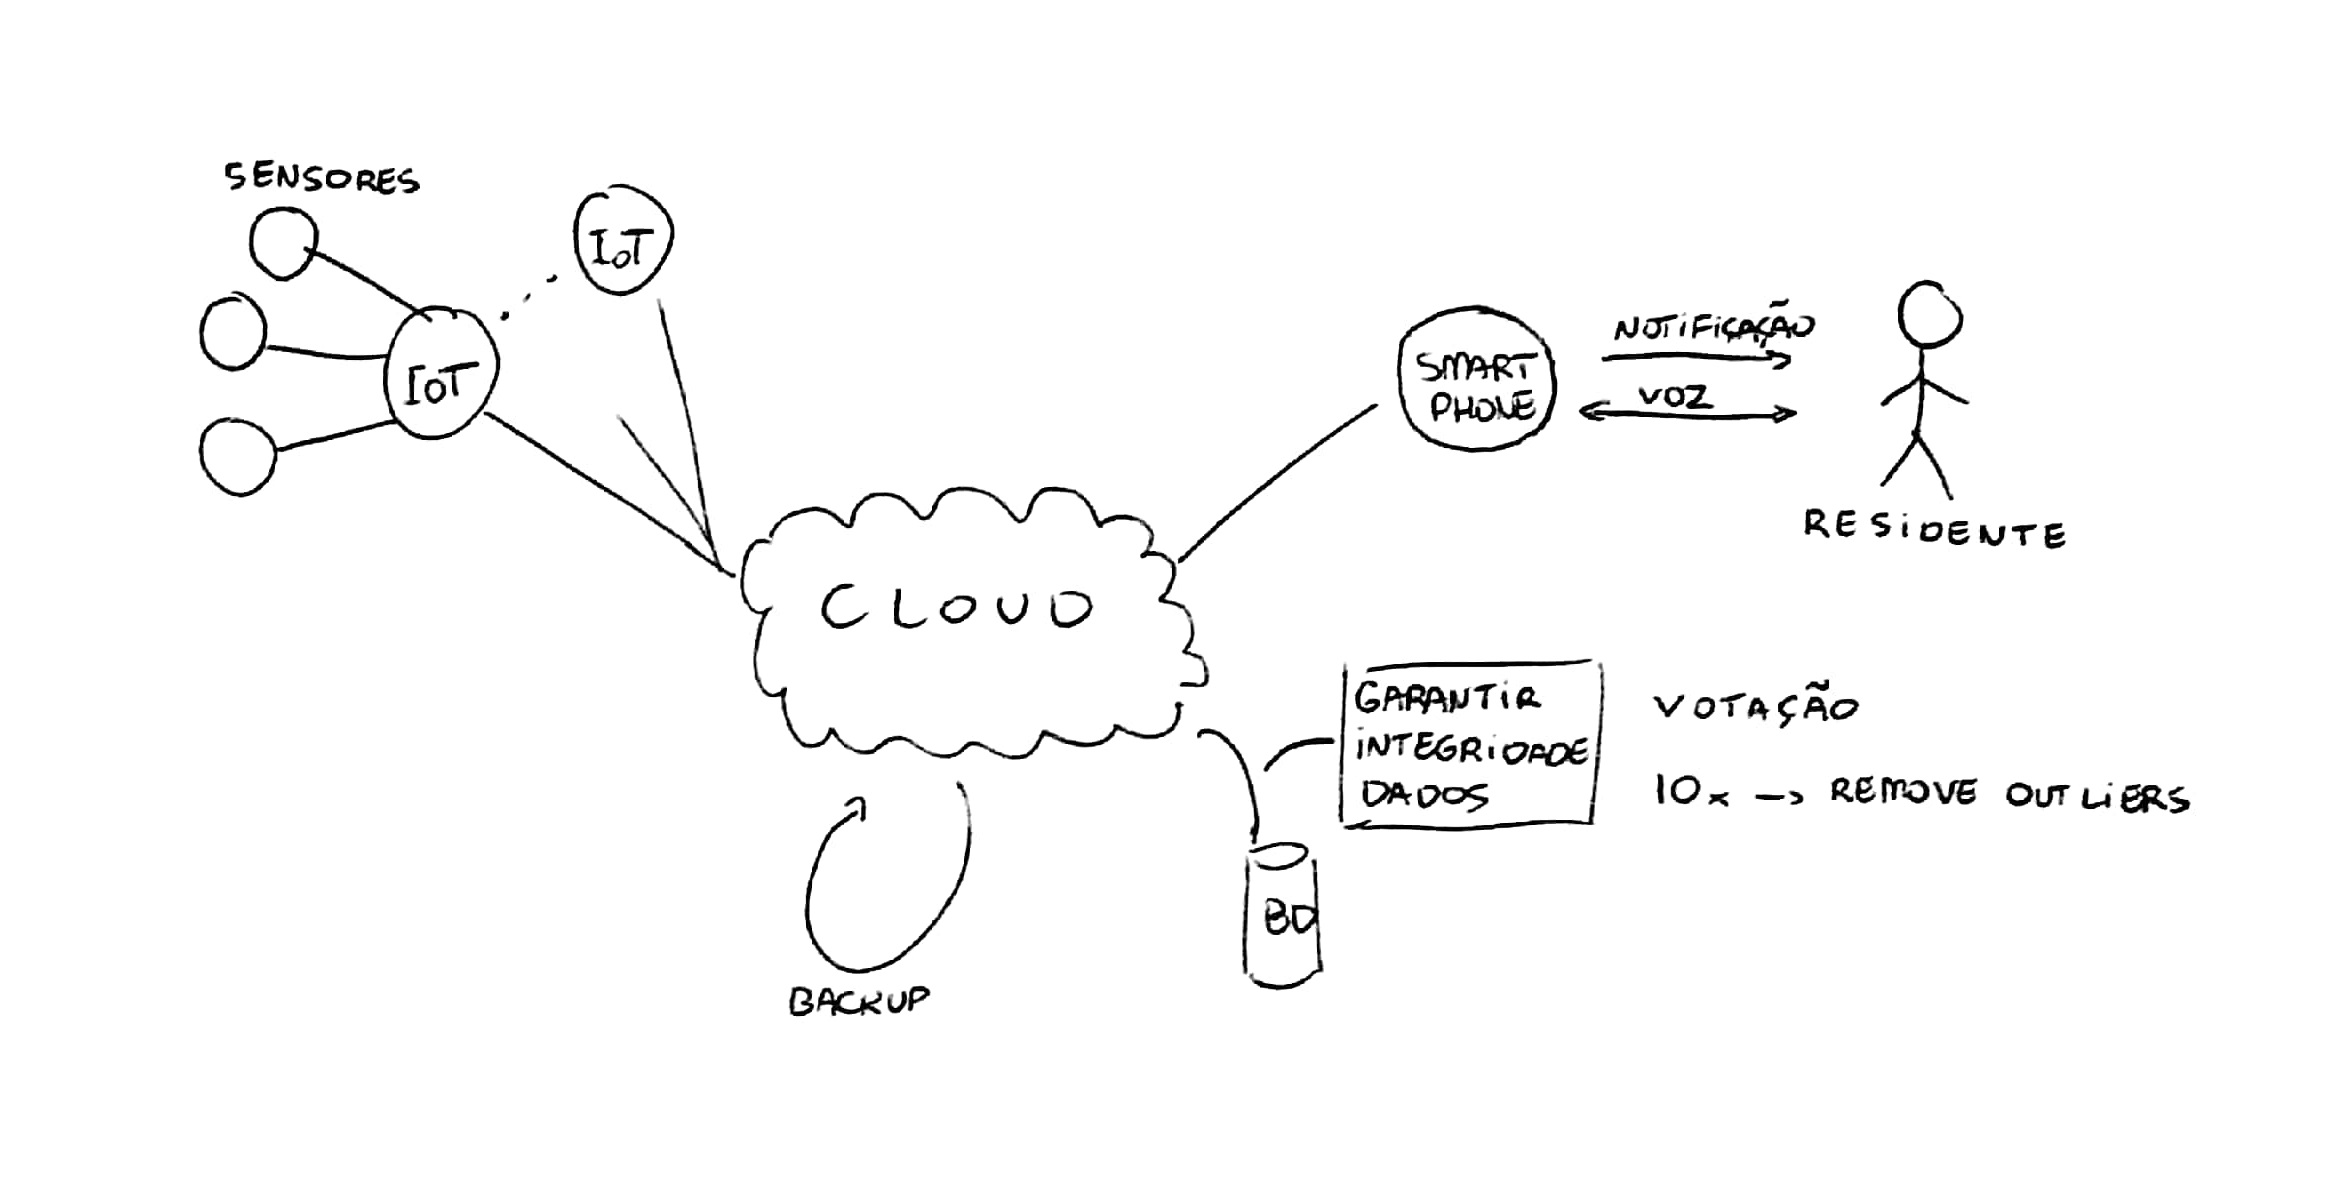 SENSORES
IoT
IoT
SMART
PHONE
NOTIFICAÇÃO
VOZ
RESIDENTE
CLOUD
GARANTIR
INTEGRIDADE
DADOS
VOTAÇÃO
10x -> REMOVE OUTLIERS
BD
BACKUP